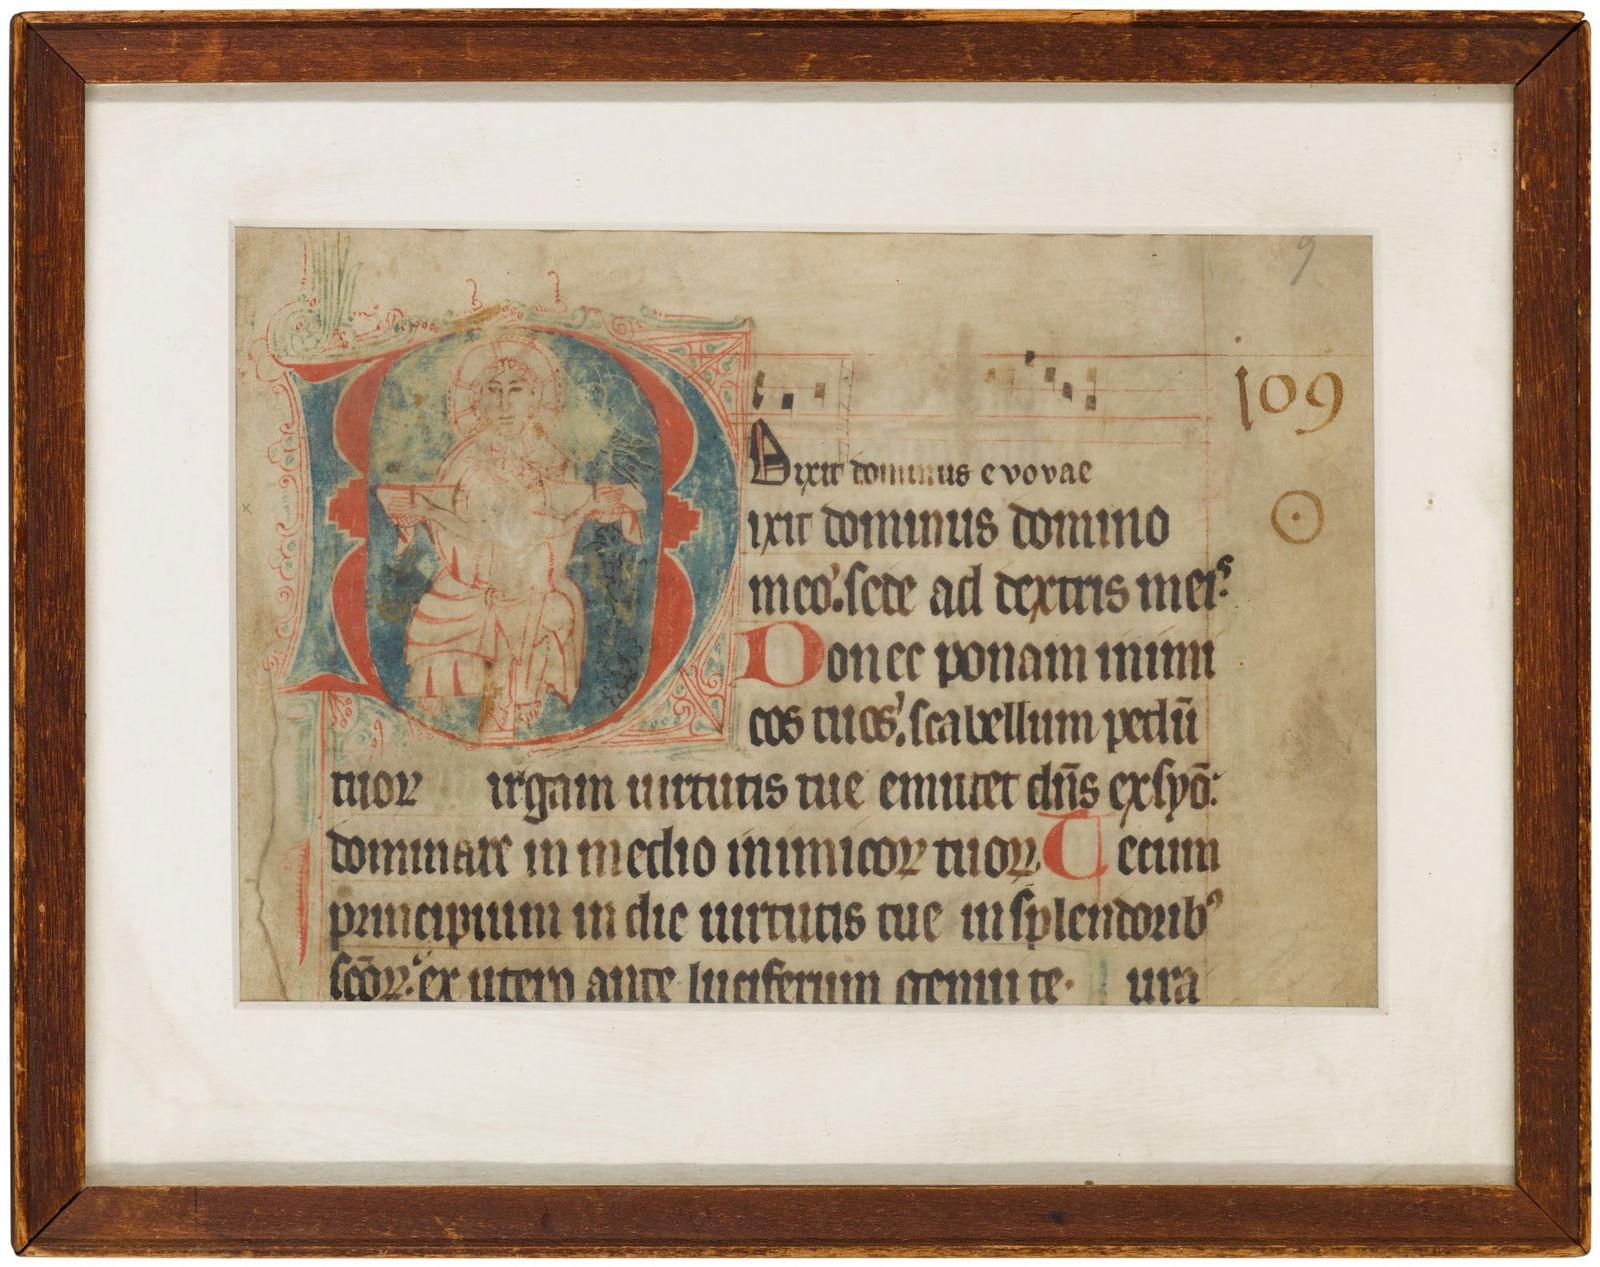 9
109
Dixit dominus evovae
Dixit dominus domino
meo: sede ad dextris meis:
Donec ponam inimi
cos tuos: scabellum pedū
tuoꝝ irgam uirtutis tue emittet dn̄s ex syō:
dominare in medio inimicoꝝ tuoꝝ Tecum
principium in die uirtutis tue in splendoribꝰ
sc̄oꝝ: ex utero ante luciferum genui te· ura